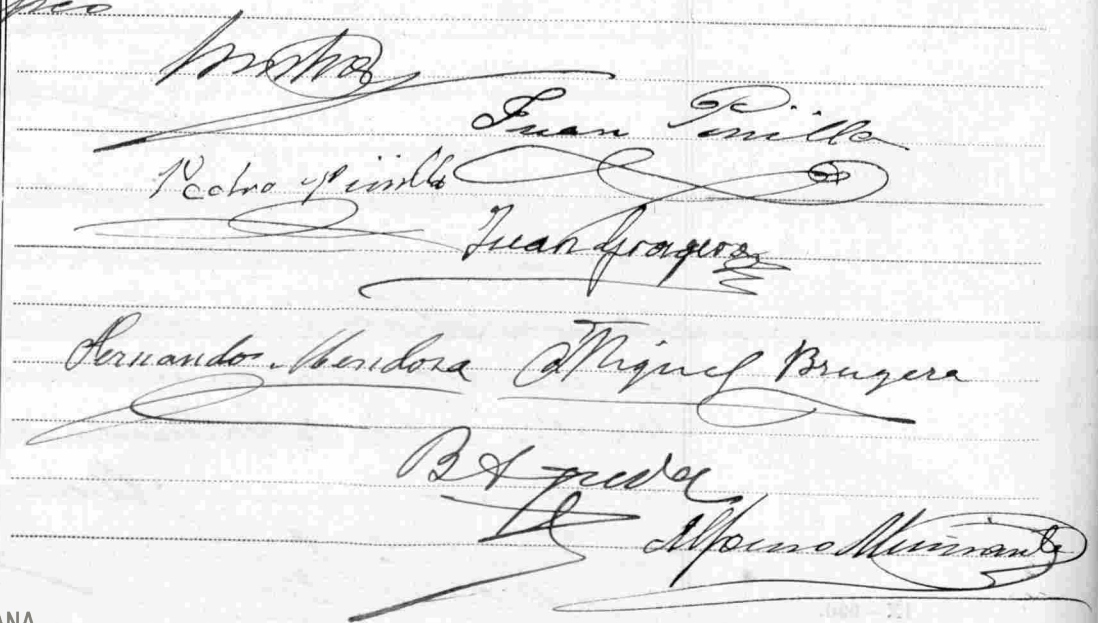 Juan Pinilla
Pedro Pinilla
Juan Gragera
Fernando Mendoza Miguel Brugera
B Agreda
Alfonso
ANA